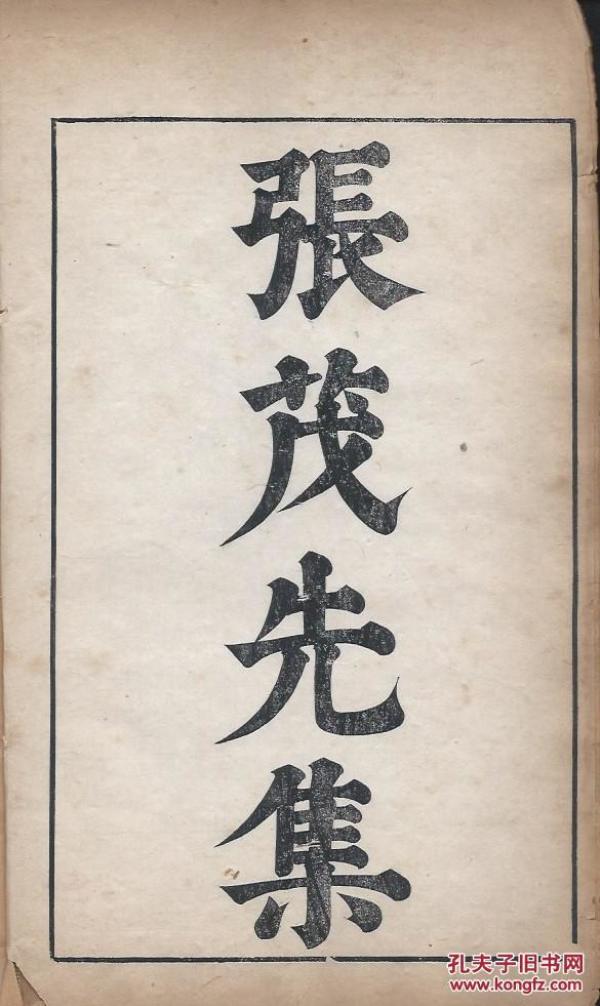 張茂先集
孔夫子旧书网
www.kongfz.com